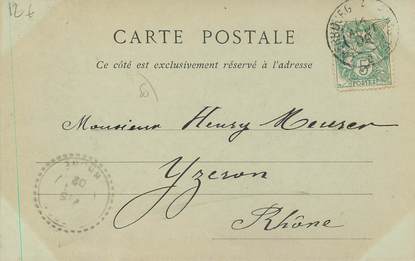 12€
CARTE POSTALE
Ce côté est exclusivement réservé à l'adresse
5
Monsieur Henry Meurer
Yzeron
Rhône